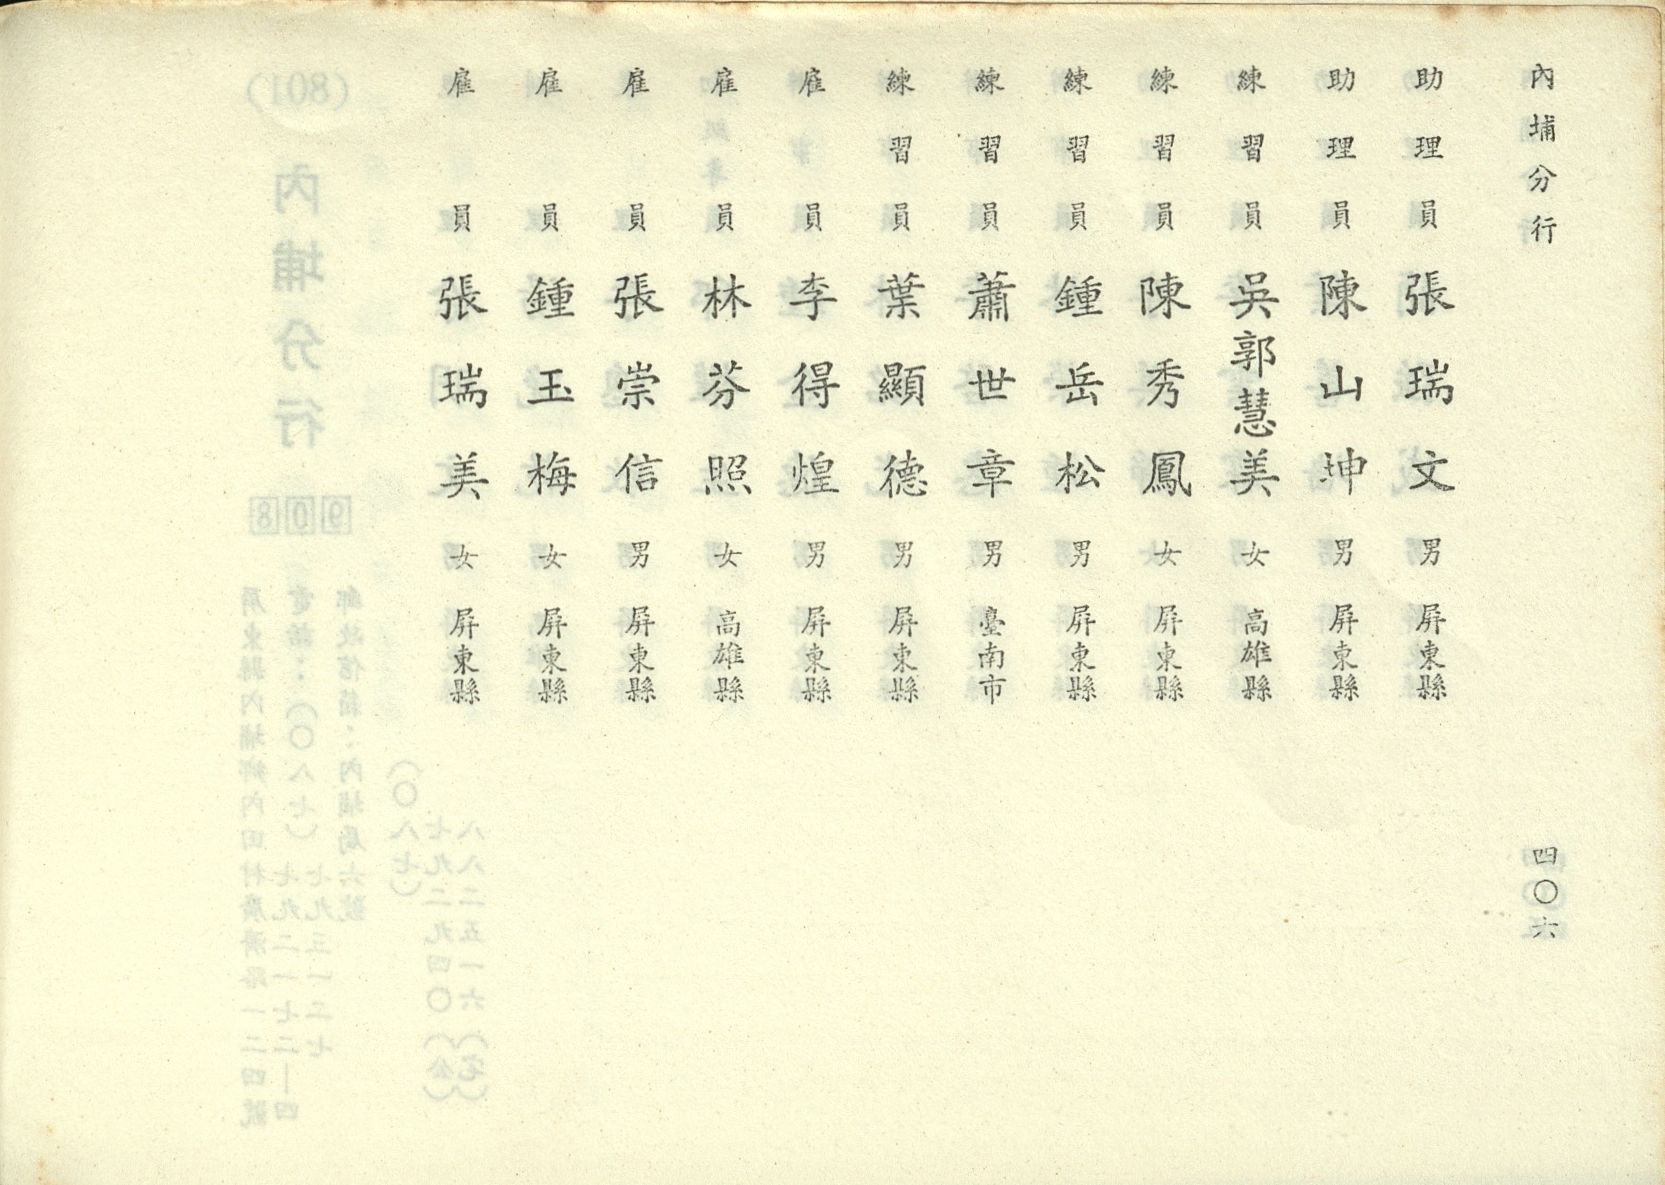 內埔分行
四〇六
助理員 張瑞文 男 屏東縣
助理員 陳山坤 男 屏東縣
練習員 吳郭慧美 女 高雄縣
練習員 陳秀鳳 女 屏東縣
練習員 鍾岳松 男 屏東縣
練習員 蕭世章 男 臺南市
練習員 葉顯德 男 屏東縣
雇員 李得煌 男 屏東縣
雇員 林芬照 女 高雄縣
雇員 張崇信 男 屏東縣
雇員 鍾玉梅 女 屏東縣
雇員 張瑞美 女 屏東縣